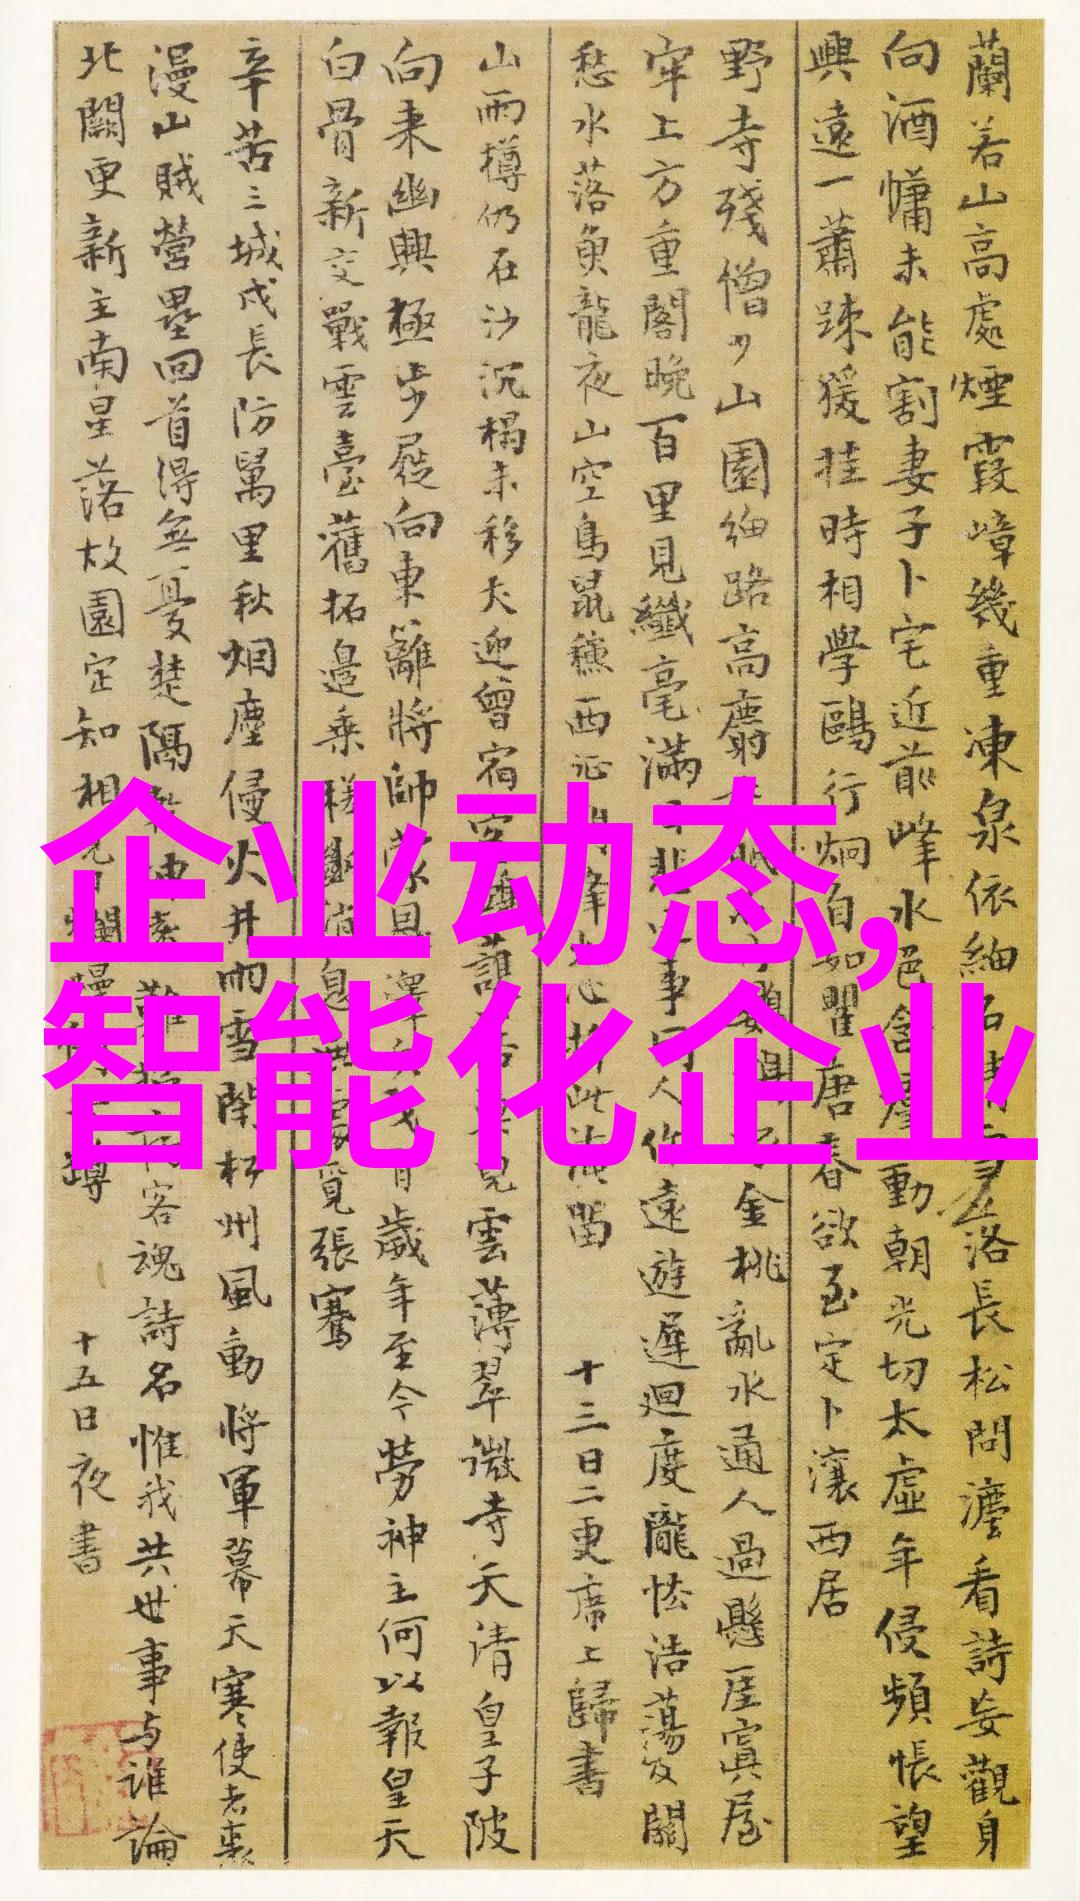 蘭若山高處煙霞嶂幾重凍泉依細石
落長松問瀍看詩妄觀身
向酒慵未能割妻子卜宅近前峰水色含
動朝光切太虛年侵頻悵望
興遠一蕭踈猨挂時相學鷗行炯自如瞿唐春欲至定卜瀼西居
野寺殘僧少山園細路高麝
金桃亂水通人過懸崖寘屋
牢上方重閣晚百里見纖毫滿
事
人作遠遊遲迴度隴怯浩蕩及關
愁水落魚龍夜山空鳥鼠穐西
此淹留 十三日二更席上歸書
山雨樽仍在沙沉榻未移犬迎曾宿客
見雲薄翠微寺天清皇子陂
向来幽興極步屧向東籬將帥蒙恩澤
歲年至今勞神主何以報皇天
白骨新交戰雲臺舊拓邊乘槎斷消息
覓張騫
辛苦三城戍長防萬里秋烟塵侵火井雨雪閉松州風動將軍幕天寒使者裘
漫山賊營壘回首得無憂楚隔
客魂詩名惟我共世事与誰論
北闕更新主南星落故園定知相見
十五日夜書
企业动态,
智能化企业